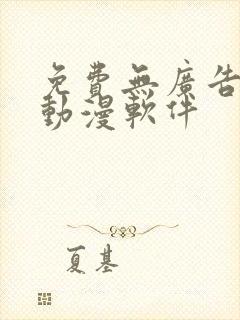 免費無廣告
動漫軟件
夏基